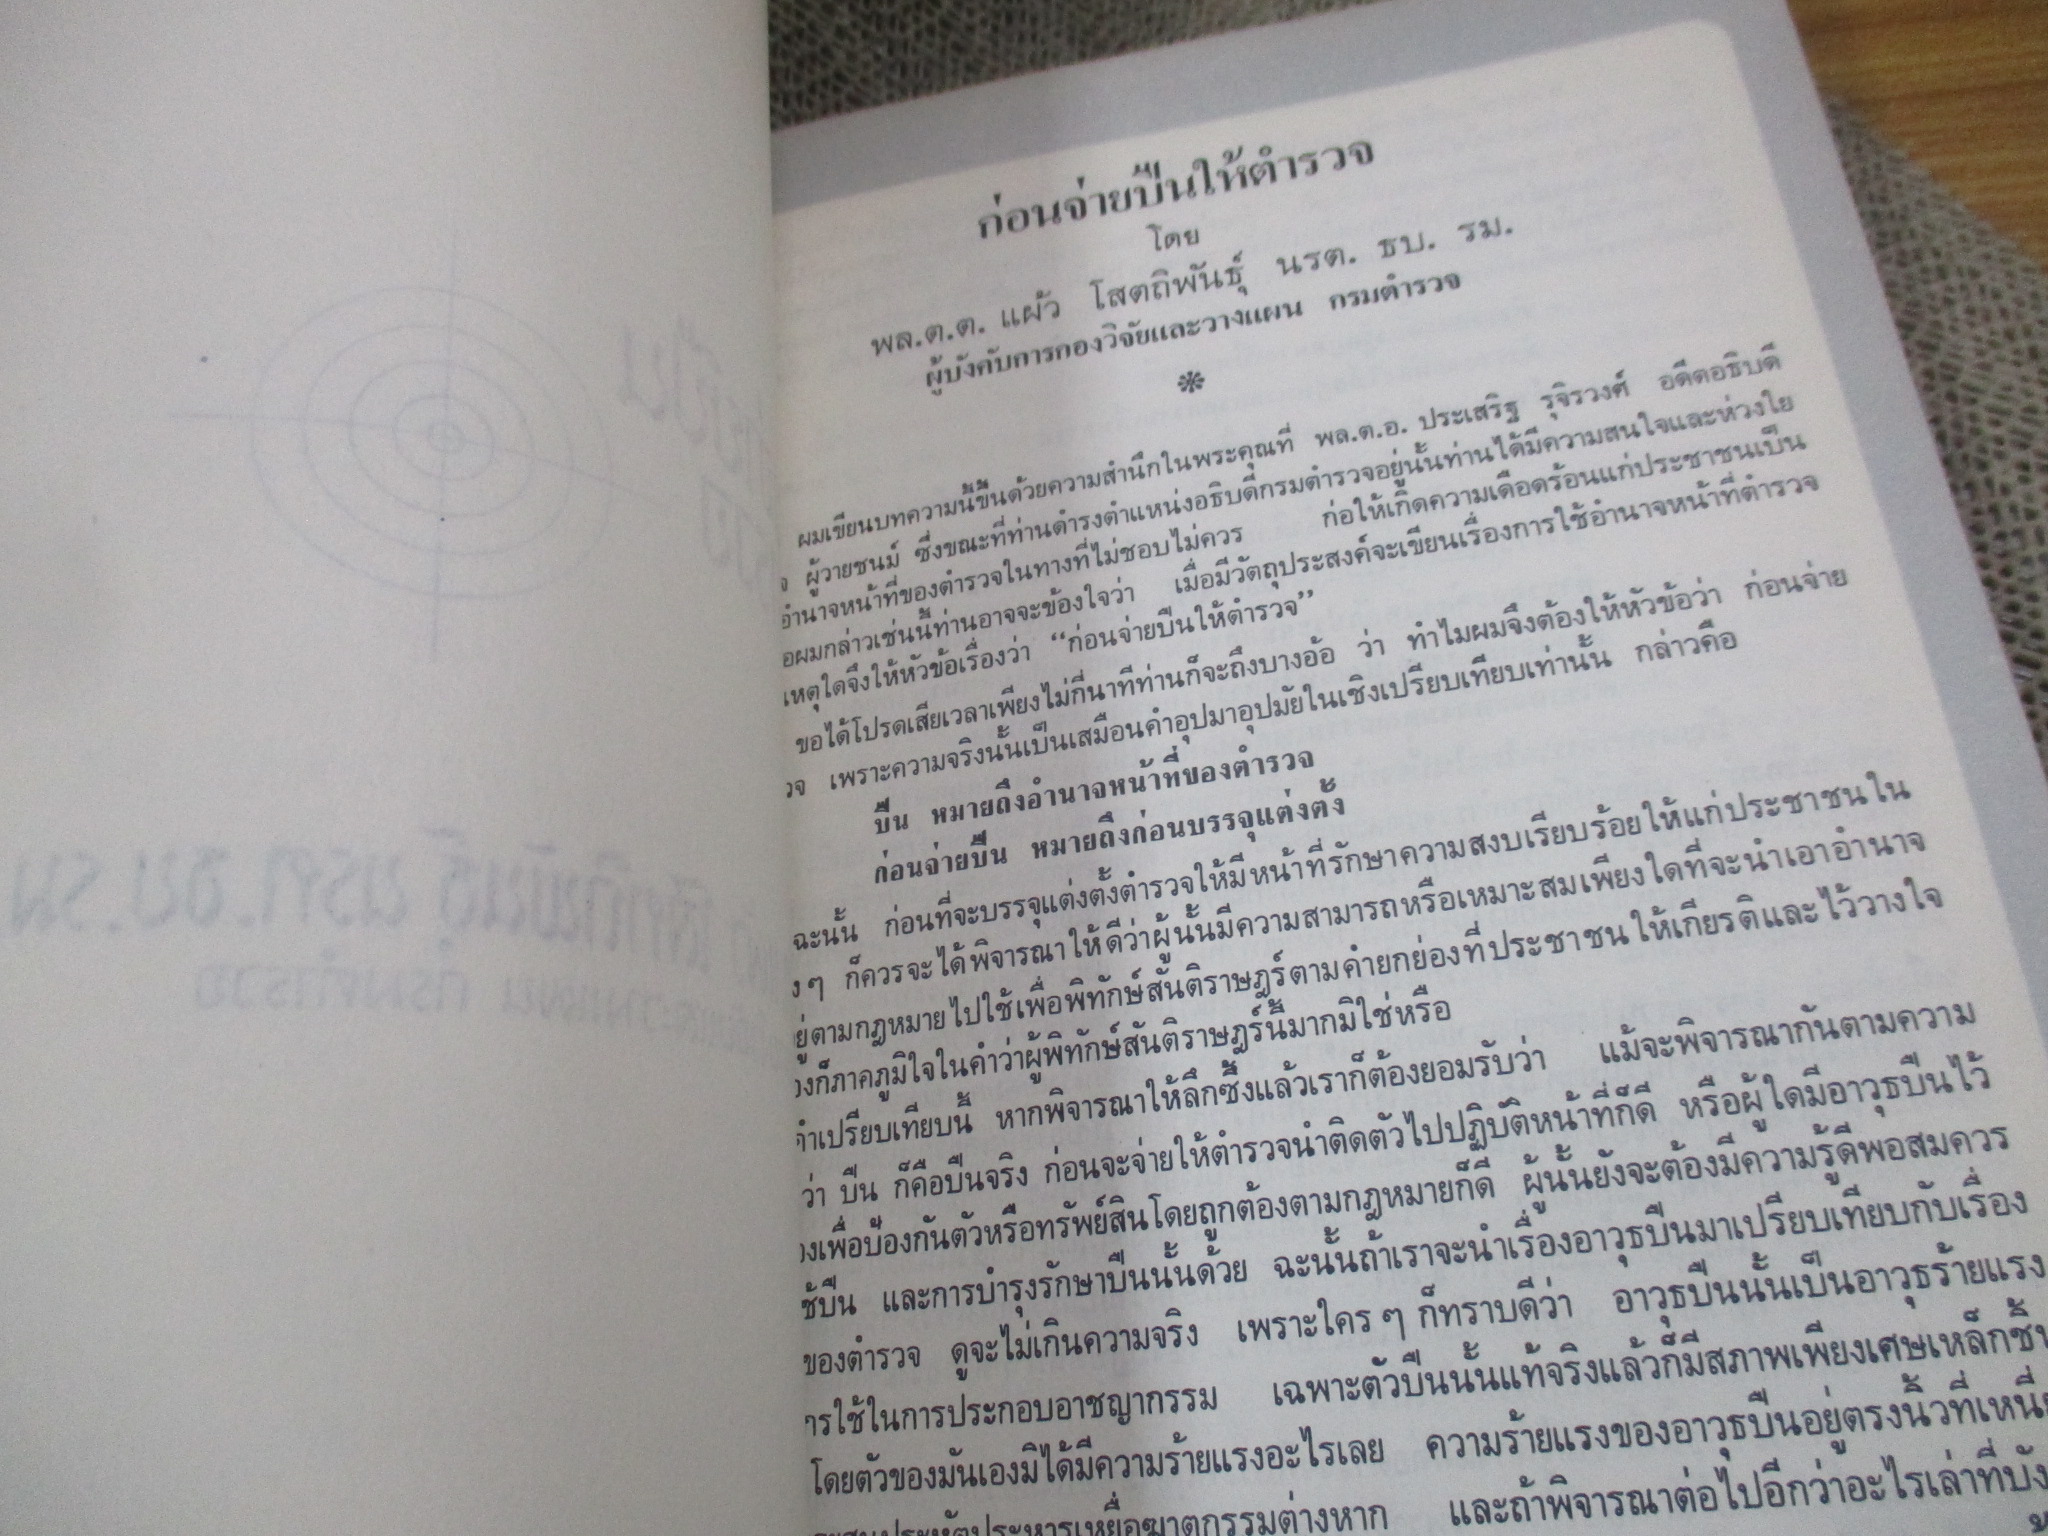 ก่อนจ่ายปืนให้ตำรวจ
โดย
พล.ต.ต. แผ้ว โสตถิพันธุ์ นรต. ธบ. รม.
ผู้บังคับการกองวิจัยและวางแผน กรมตำรวจ
ผมเขียนบทความนี้ขึ้นด้วยความสำนึกในพระคุณที่ พล.ต.อ. ประเสริฐ รุจิรวงศ์ อดีตอธิบดี
ผู้วายชนม์ ซึ่งขณะที่ท่านดำรงตำแหน่งอธิบดีกรมตำรวจอยู่นั้นท่านได้มีความสนใจและห่วงใย
อำนาจหน้าที่ของตำรวจในทางที่ไม่ชอบไม่ควร ก่อให้เกิดความเดือดร้อนแก่ประชาชนเป็น
อผมกล่าวเช่นนี้ท่านอาจจะข้องใจว่า เมื่อมีวัตถุประสงค์จะเขียนเรื่องการใช้อำนาจหน้าที่ตำรวจ
เหตุใดจึงให้หัวข้อเรื่องว่า “ก่อนจ่ายปืนให้ตำรวจ”
ขอได้โปรดเสียเวลาเพียงไม่กี่นาทีท่านก็จะถึงบางอ้อ ว่า ทำไมผมจึงต้องให้หัวข้อว่า ก่อนจ่าย
วจ เพราะความจริงนั้นเป็นเสมือนคำอุปมาอุปมัยในเชิงเปรียบเทียบเท่านั้น กล่าวคือ
ปืน หมายถึงอำนาจหน้าที่ของตำรวจ
ก่อนจ่ายปืน หมายถึงก่อนบรรจุแต่งตั้ง
ฉะนั้น ก่อนที่จะบรรจุแต่งตั้งตำรวจให้มีหน้าที่รักษาความสงบเรียบร้อยให้แก่ประชาชนใน
ง ๆ ก็ควรจะได้พิจารณาให้ดีว่าผู้นั้นมีความสามารถหรือเหมาะสมเพียงใดที่จะนำเอาอำนาจ
ยู่ตามกฎหมายไปใช้เพื่อพิทักษ์สันติราษฎร์ตามคำยกย่องที่ประชาชนให้เกียรติและไว้วางใจ
องก็ภาคภูมิใจในคำว่าผู้พิทักษ์สันติราษฎร์นี้มากมิใช่หรือ
คำเปรียบเทียบนี้ หากพิจารณาให้ลึกซึ้งแล้วเราก็ต้องยอมรับว่า แม้จะพิจารณากันตามความ
ว่า ปืน ก็คือปืนจริง ก่อนจะจ่ายให้ตำรวจนำติดตัวไปปฏิบัติหน้าที่ก็ดี หรือผู้ใดมีอาวุธปืนไว้
งเพื่อป้องกันตัวหรือทรัพย์สินโดยถูกต้องตามกฎหมายก็ดี ผู้นั้นยังจะต้องมีความรู้ดีพอสมควร
ช้ปืน และการบำรุงรักษาปืนนั้นด้วย ฉะนั้นถ้าเราจะนำเรื่องอาวุธปืนมาเปรียบเทียบกับเรื่อง
ของตำรวจ ดูจะไม่เกินความจริง เพราะใคร ๆ ก็ทราบดีว่า อาวุธปืนนั้นเป็นอาวุธร้ายแรง
ารใช้ในการประกอบอาชญากรรม เฉพาะตัวปืนนั้นแท้จริงแล้วก็มีสภาพเพียงเศษเหล็กชิ้น
โดยตัวของมันเองมิได้มีความร้ายแรงอะไรเลย ความร้ายแรงของอาวุธปืนอยู่ตรงนิ้วที่เหนี่ย
ประหัตประหารเหยื่อฆาตกรรมต่างหาก และถ้าพิจารณาต่อไปอีกว่าอะไรเล่าที่บัง